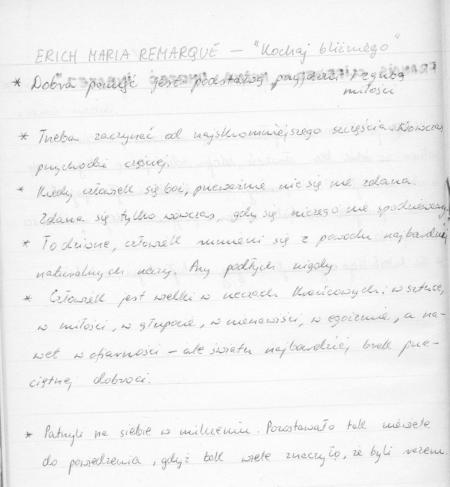 ERICH MARIA REMARQUE — "Kochaj bliźniego"
* Dobra pamięć jest podstawą przyjaźni i zgubą
miłości
* Trzeba zaczynać od najskromniejszego szczęścia. Wówczas
przychodzi częściej.
* Kiedy człowiek się boi, przeważnie nic się nie zdarza.
Zdarza się tylko wówczas, gdy się niczego nie spodziewamy
* To dziwne, człowiek rumieni się z powodu najbardziej
naturalnych rzeczy. Przy podłych nigdy.
* Człowiek jest wielki w rzeczach krańcowych: w sztuce,
w miłości, w głupocie, w nienawiści, w egoizmie, a na-
wet w ofiarności – ale światu najbardziej brak prze-
ciętnej dobroci.
* Patrzyli na siebie w milczeniu. Pozostawało tak niewiele
do powiedzenia, gdyż tak wiele znaczyło, że byli razem.